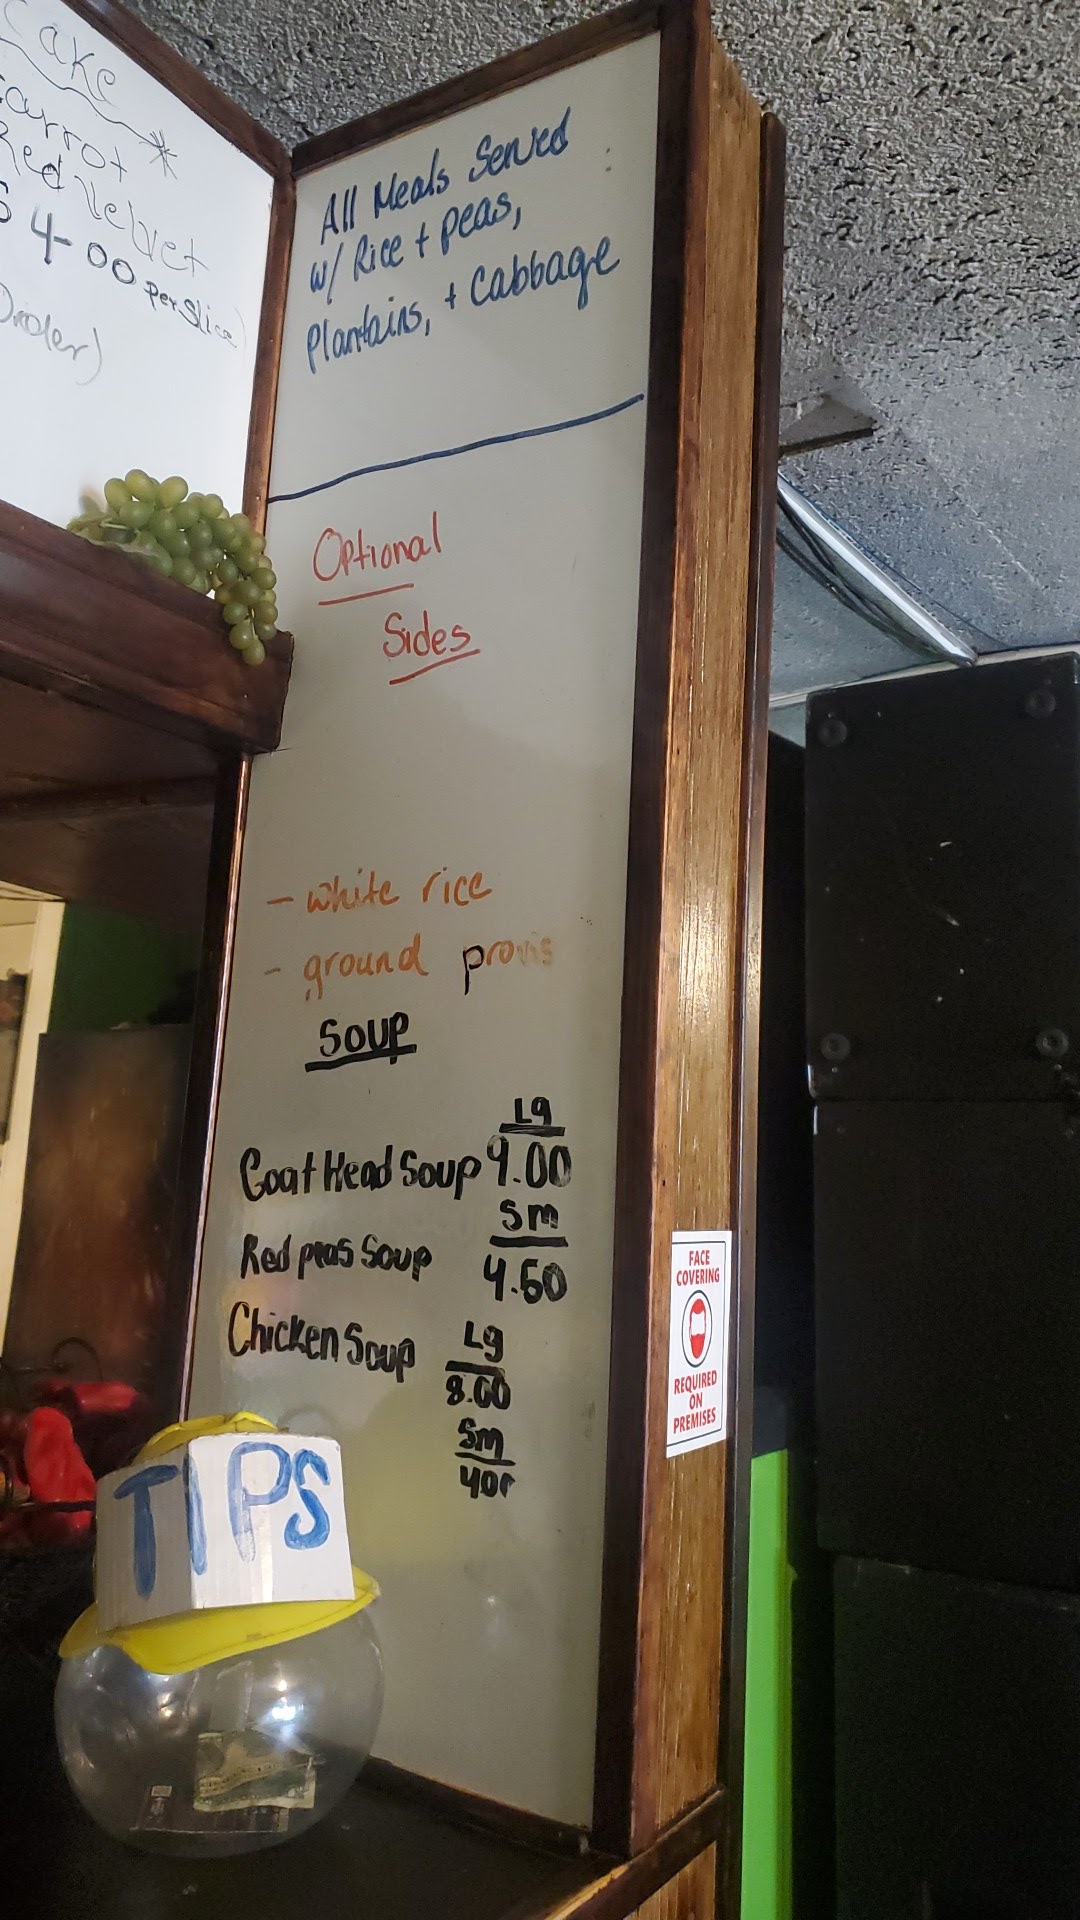 Cake
Carrot
Red Velvet
$ 4-00 per slice
Order)
All Meals Served
w/ Rice + peas,
Plantains, + Cabbage
Optional
Sides
- white rice
- ground provis
Soup
Lg
Goat Head Soup 9.00
Sm
Red peas Soup 4.50
Chicken Soup Lg
8.00
Sm
400
FACE
COVERING
REQUIRED
ON
PREMISES
TIPS